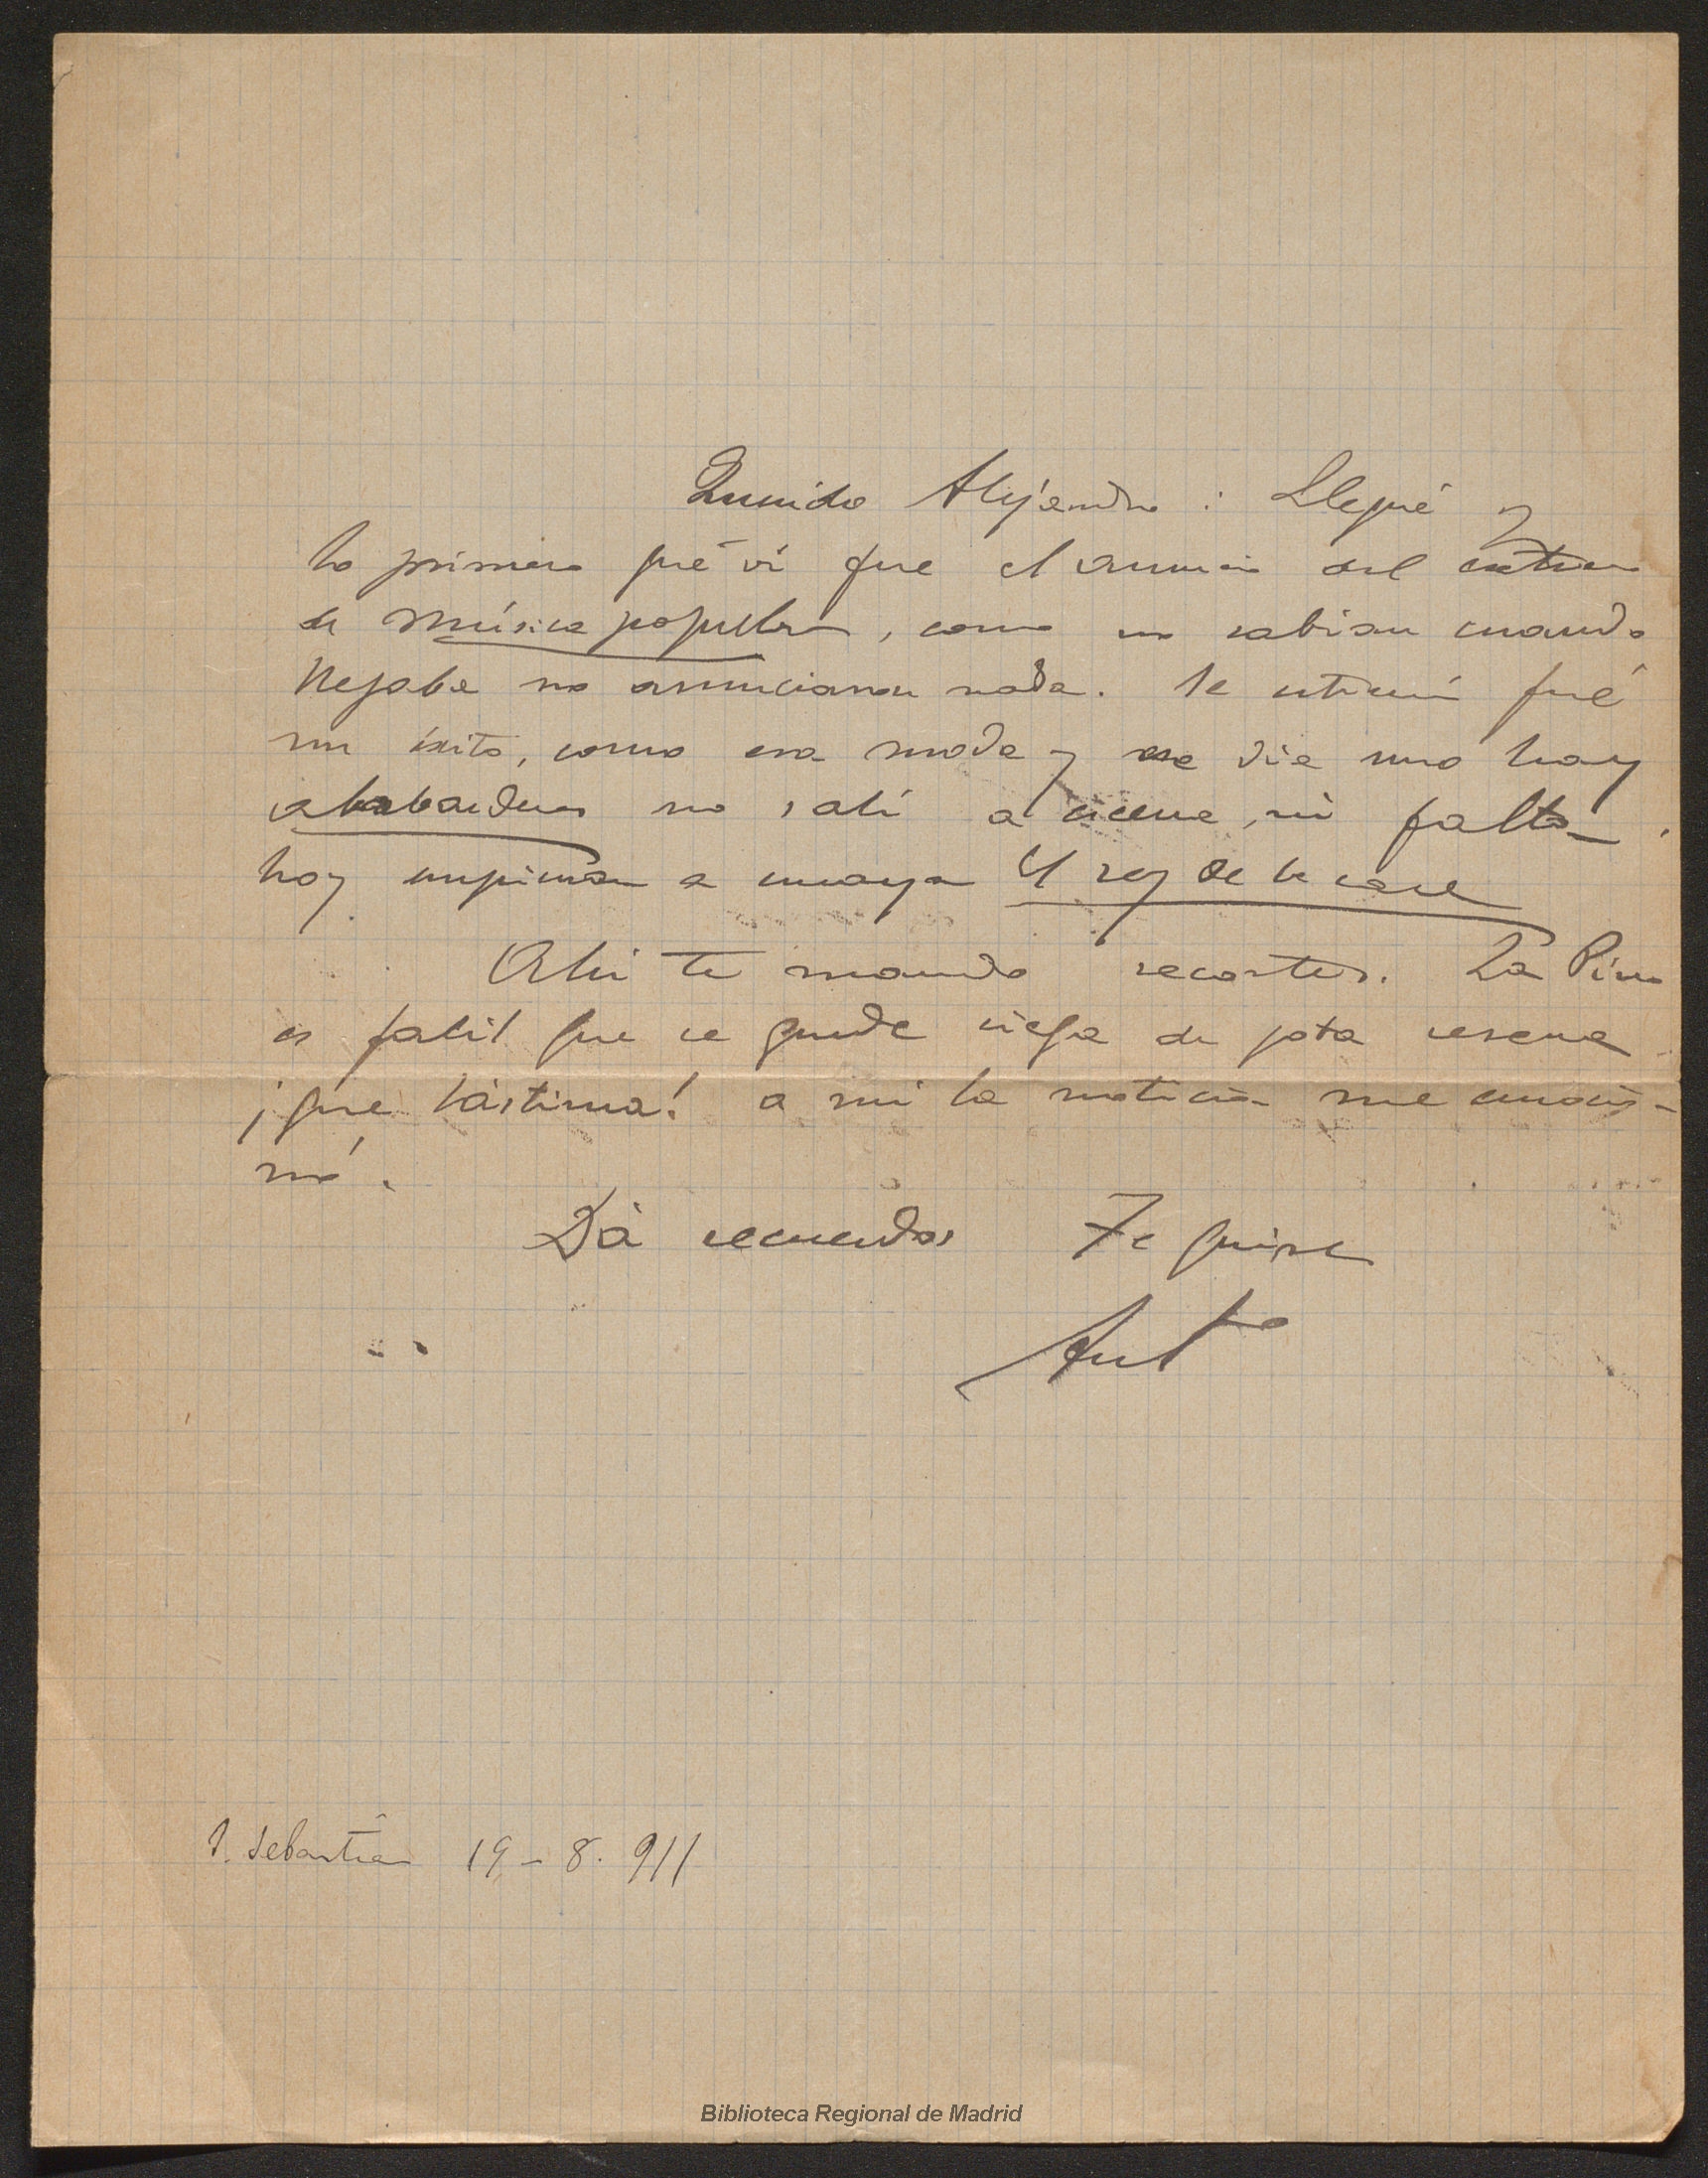 Querido Alejandro: Llegué y
lo primero que ví fue el anuncio del estreno
de Música popular, como no sabian cuando
llegaba no anunciaron nada. Se estrenó fué
un éxito, como era moda y ese dia no hay
alabarderos no salí a escena, ni falta.
hoy empiezan a ensayar El rey de la casa
Ahi te mando recortes. La Pino
es facil que se quede ciega de gota serena
¡que lástima! a mi la noticia me emocio-
nó.
Dá recuerdos Te quiere
Anto
S. Sebastián 19-8-911
Biblioteca Regional de Madrid